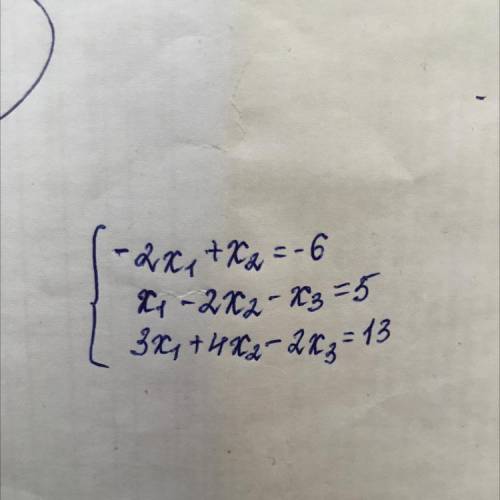 -2x₁ + x₂ = -6
x₁ - 2x₂ - x₃ = 5
3x₁ + 4x₂ - 2x₃ = 13